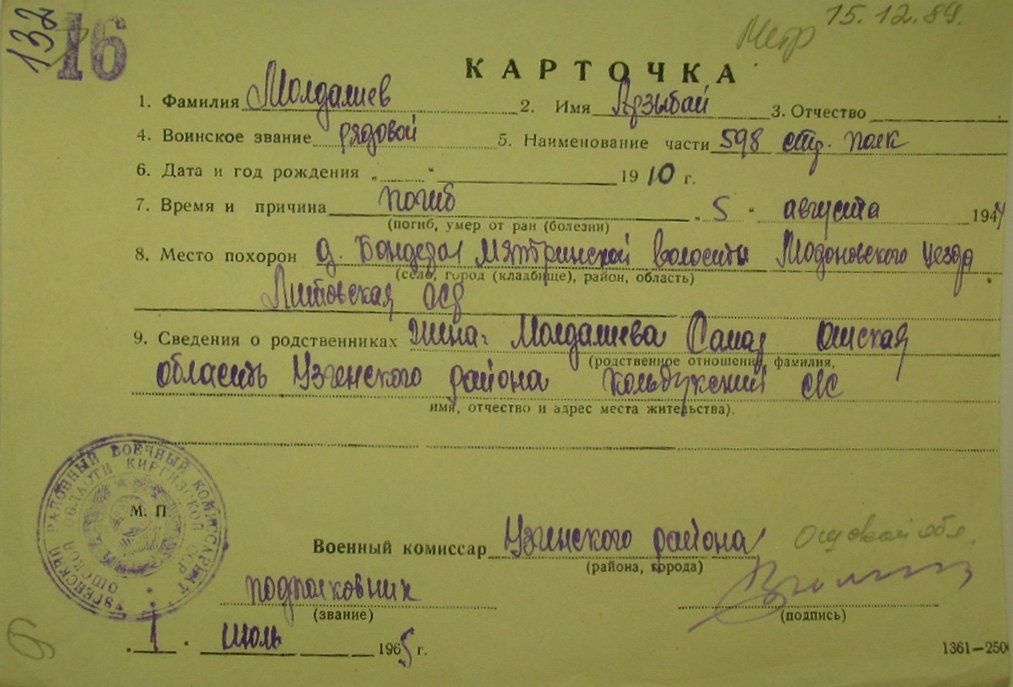 132
16
Метр 15.12.89.
КАРТОЧКА
1. Фамилия Молдалиев 2. Имя Арзыбай 3. Отчество
4. Воинское звание рядовой 5. Наименование части 598 стр. полк
6. Дата и год рождения „ “ 1910 г.
7. Время и причина погиб „5“ августа 1944
(погиб, умер от ран (болезни)
8. Место похорон д. Бондезы Мятринской волости Модоновского уезда
(село, город (кладбище), район, область)
Литовская ССР
9. Сведения о родственниках жена: Молдалиева Ошская
(родственное отношение, фамилия,
область Узгенского района Кольдукский с/с
имя, отчество и адрес места жительства).
УЗГЕНСКИЙ РАЙОННЫЙ ВОЕННЫЙ КОМИССАРИАТ
ОШСКОЙ ОБЛАСТИ КИРГИЗСКОЙ ССР
М. П
Военный комиссар Узгенского района обл.
(района, города)
подполковник
(звание) (подпись)
„1“ июль 1965 г.
1361—250